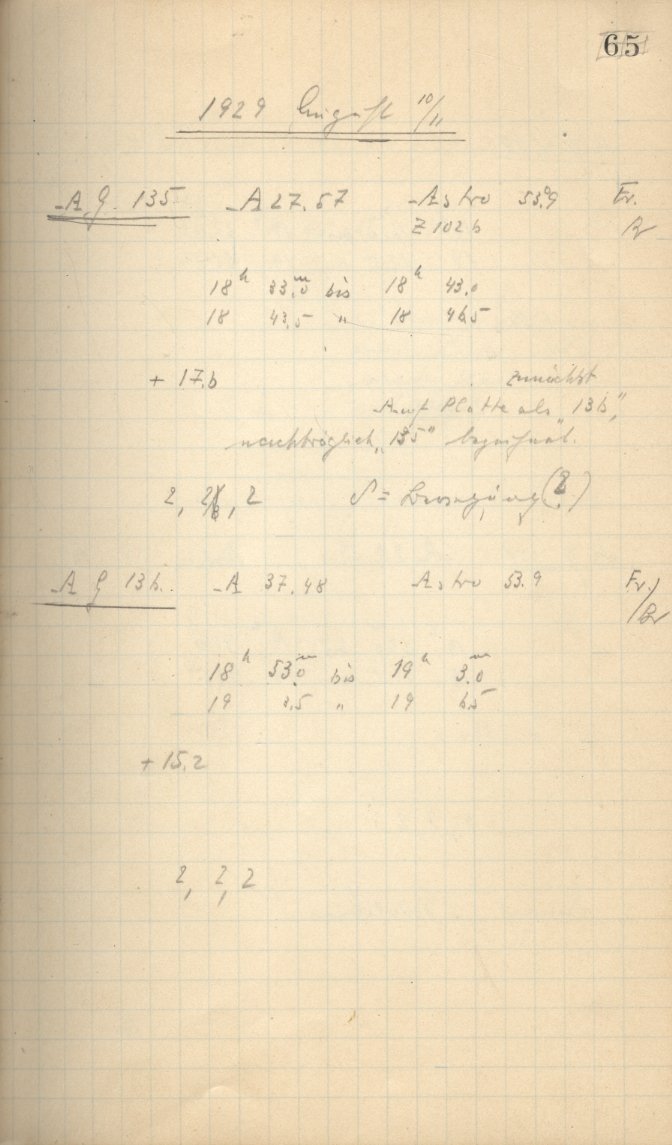 65
1929 August 10/11
AG. 135 A 27.57 Astro 53.9 Fr.
Z 102 b Br
18h 33.0m bis 18h 43.0
18 43.5 " 18 46.5
+ 17.6
zunächst
Auf Platte als "136",
nachträglich "135" bezeichnet.
2, 2, 2 S = Bewegung (?)
AG 136. A 37.48 Astro 53.9 Fr./Br
18h 53.0m bis 19h 3.0m
19 3.5 " 19 6.5
+ 15.2
2, 2, 2